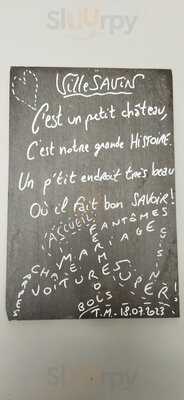 VilleSAVIN
C'est un petit château,
C'est notre grande HiSTOiRE.
Un p'tit endroit très beau
Où il fait bon SAVOIR!
ACCUEIL
FANTÔMES
MARIAGE
VOITURES
BOIS
T.M. 18.07.2023